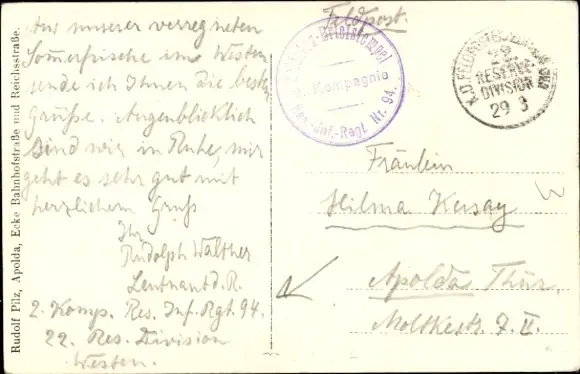 Aus unserer verregneten
Sommerfrische im Westen
sende ich Ihnen die besten
Grüße. Augenblicklich
sind wir in Ruhe, mir
geht es sehr gut mit
herzlichem Gruß
Ihr
Rudolph Walther
Leutnant d. R.
2. Komp. Res. Inf. Rgt. 94.
22. Res. Division
Westen.
Rudolf Pilz, Apolda, Ecke Bahnhofstraße und Reichsstraße.
Feldpost.
Briefstempel
Kompagnie
Res.-Inf.-Regt. Nr. 94.
22.
RESERVE
DIVISION
29 3
Fräulein
Hilma
Apolda Thür.
Moltkestr. 7. II.